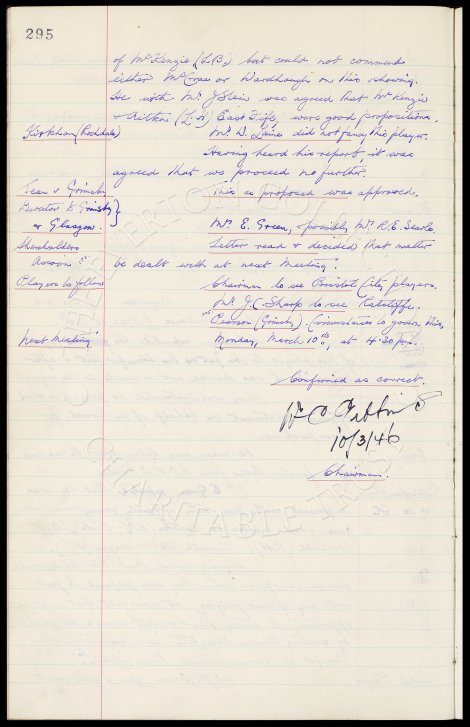 295
of McKenzie (L.B.) but could not commend
either McCrae or Wardhaugh on this showing.
He with Mr J Stein was agreed that McKenzie
& Aitken (L.H) East Fife, were good propositions.
Kirkham (Rochdale) Mr. D. Laine did not fancy this player.
Having heard his report, it was
agreed that we proceed no further.
Team v Grimsby This as proposed was approved.
Director to Grimsby Mr. E. Green, & possibly Mr. R.E. Searle.
or Glasgow.
Shareholders Letter read & decided that matter
Assocn be dealt with at next Meeting.
Players to follow Chairman to see Bristol City players.
Mr. J.C. Sharp to see Ratcliffe.
Pearson (Grimsby). Circumstances to govern this.
Next Meeting Monday, March 10th, at 4.30 pm.
Confirmed as correct.
10/3/46
Chairman.
EVERTON
CHARITABLE TRUST